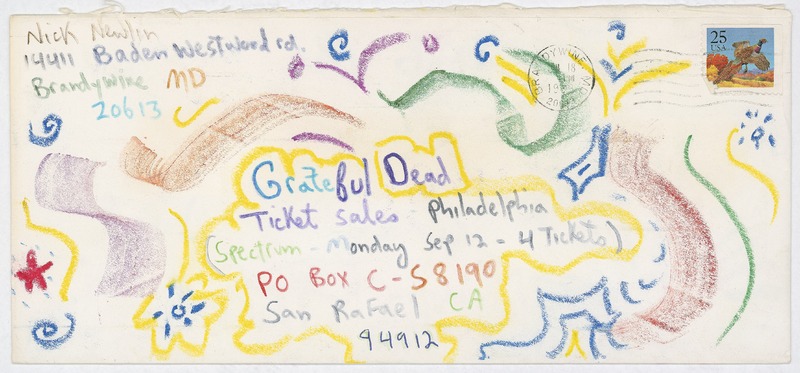 Nick Newlin
14411 Baden Westwood rd.
Brandywine MD
20613
25
USA
BRANDYWINE, MD
18
19
Grateful Dead
Ticket Sales - Philadelphia
(Spectrum - Monday Sep 12 - 4 Tickets)
PO Box C-S8190
San Rafael CA
94912